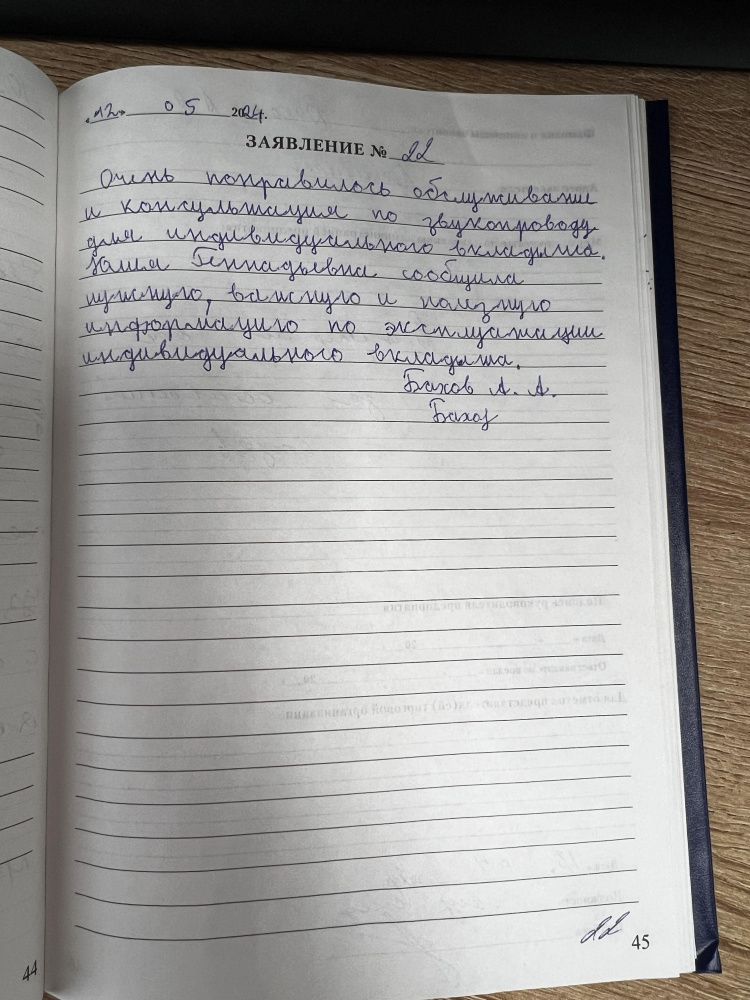 «12» 05 2024г.
ЗАЯВЛЕНИЕ № 22
Очень понравилось обслуживание
и консультация по звукопроводу
для индивидуального вкладыша.
Геннадьевна сообщила
нужную, важную и полезную
информацию по эксплуатации
индивидуального вкладыша.
Бахов А. А.
22
45
44